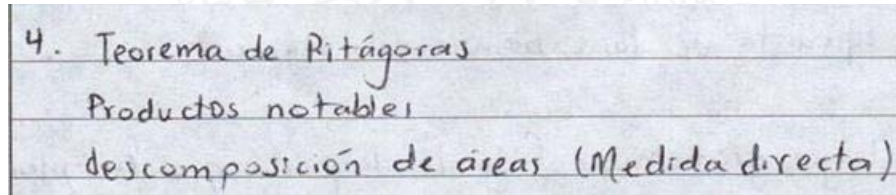 4. Teorema de Pitágoras
Productos notables
descomposición de áreas (Medida directa)